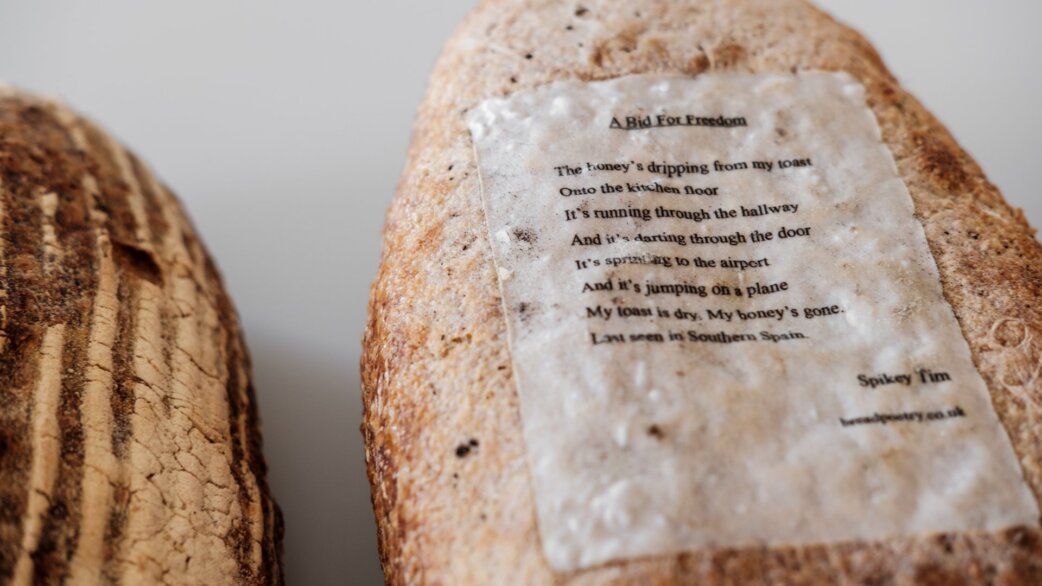 A Bid For Freedom
The honey's dripping from my toast
Onto the kitchen floor
It's running through the hallway
And it's darting through the door
It's sprinting to the airport
And it's jumping on a plane
My toast is dry. My honey's gone.
Last seen in Southern Spain.
Spikey Tim
breadpoetry.co.uk